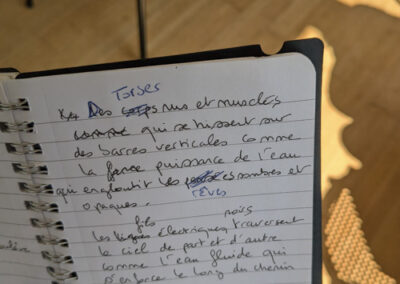 Torses
Des corps nus et musclés
comme qui se hissent sur
des barres verticales comme
la force puissance de l'eau
qui engloutit les sombres et
rêves
opaques.
fils noirs
les lignes électriques traversent
le ciel de part et d'autre
comme l'eau fluide qui
renforce le long du chemin